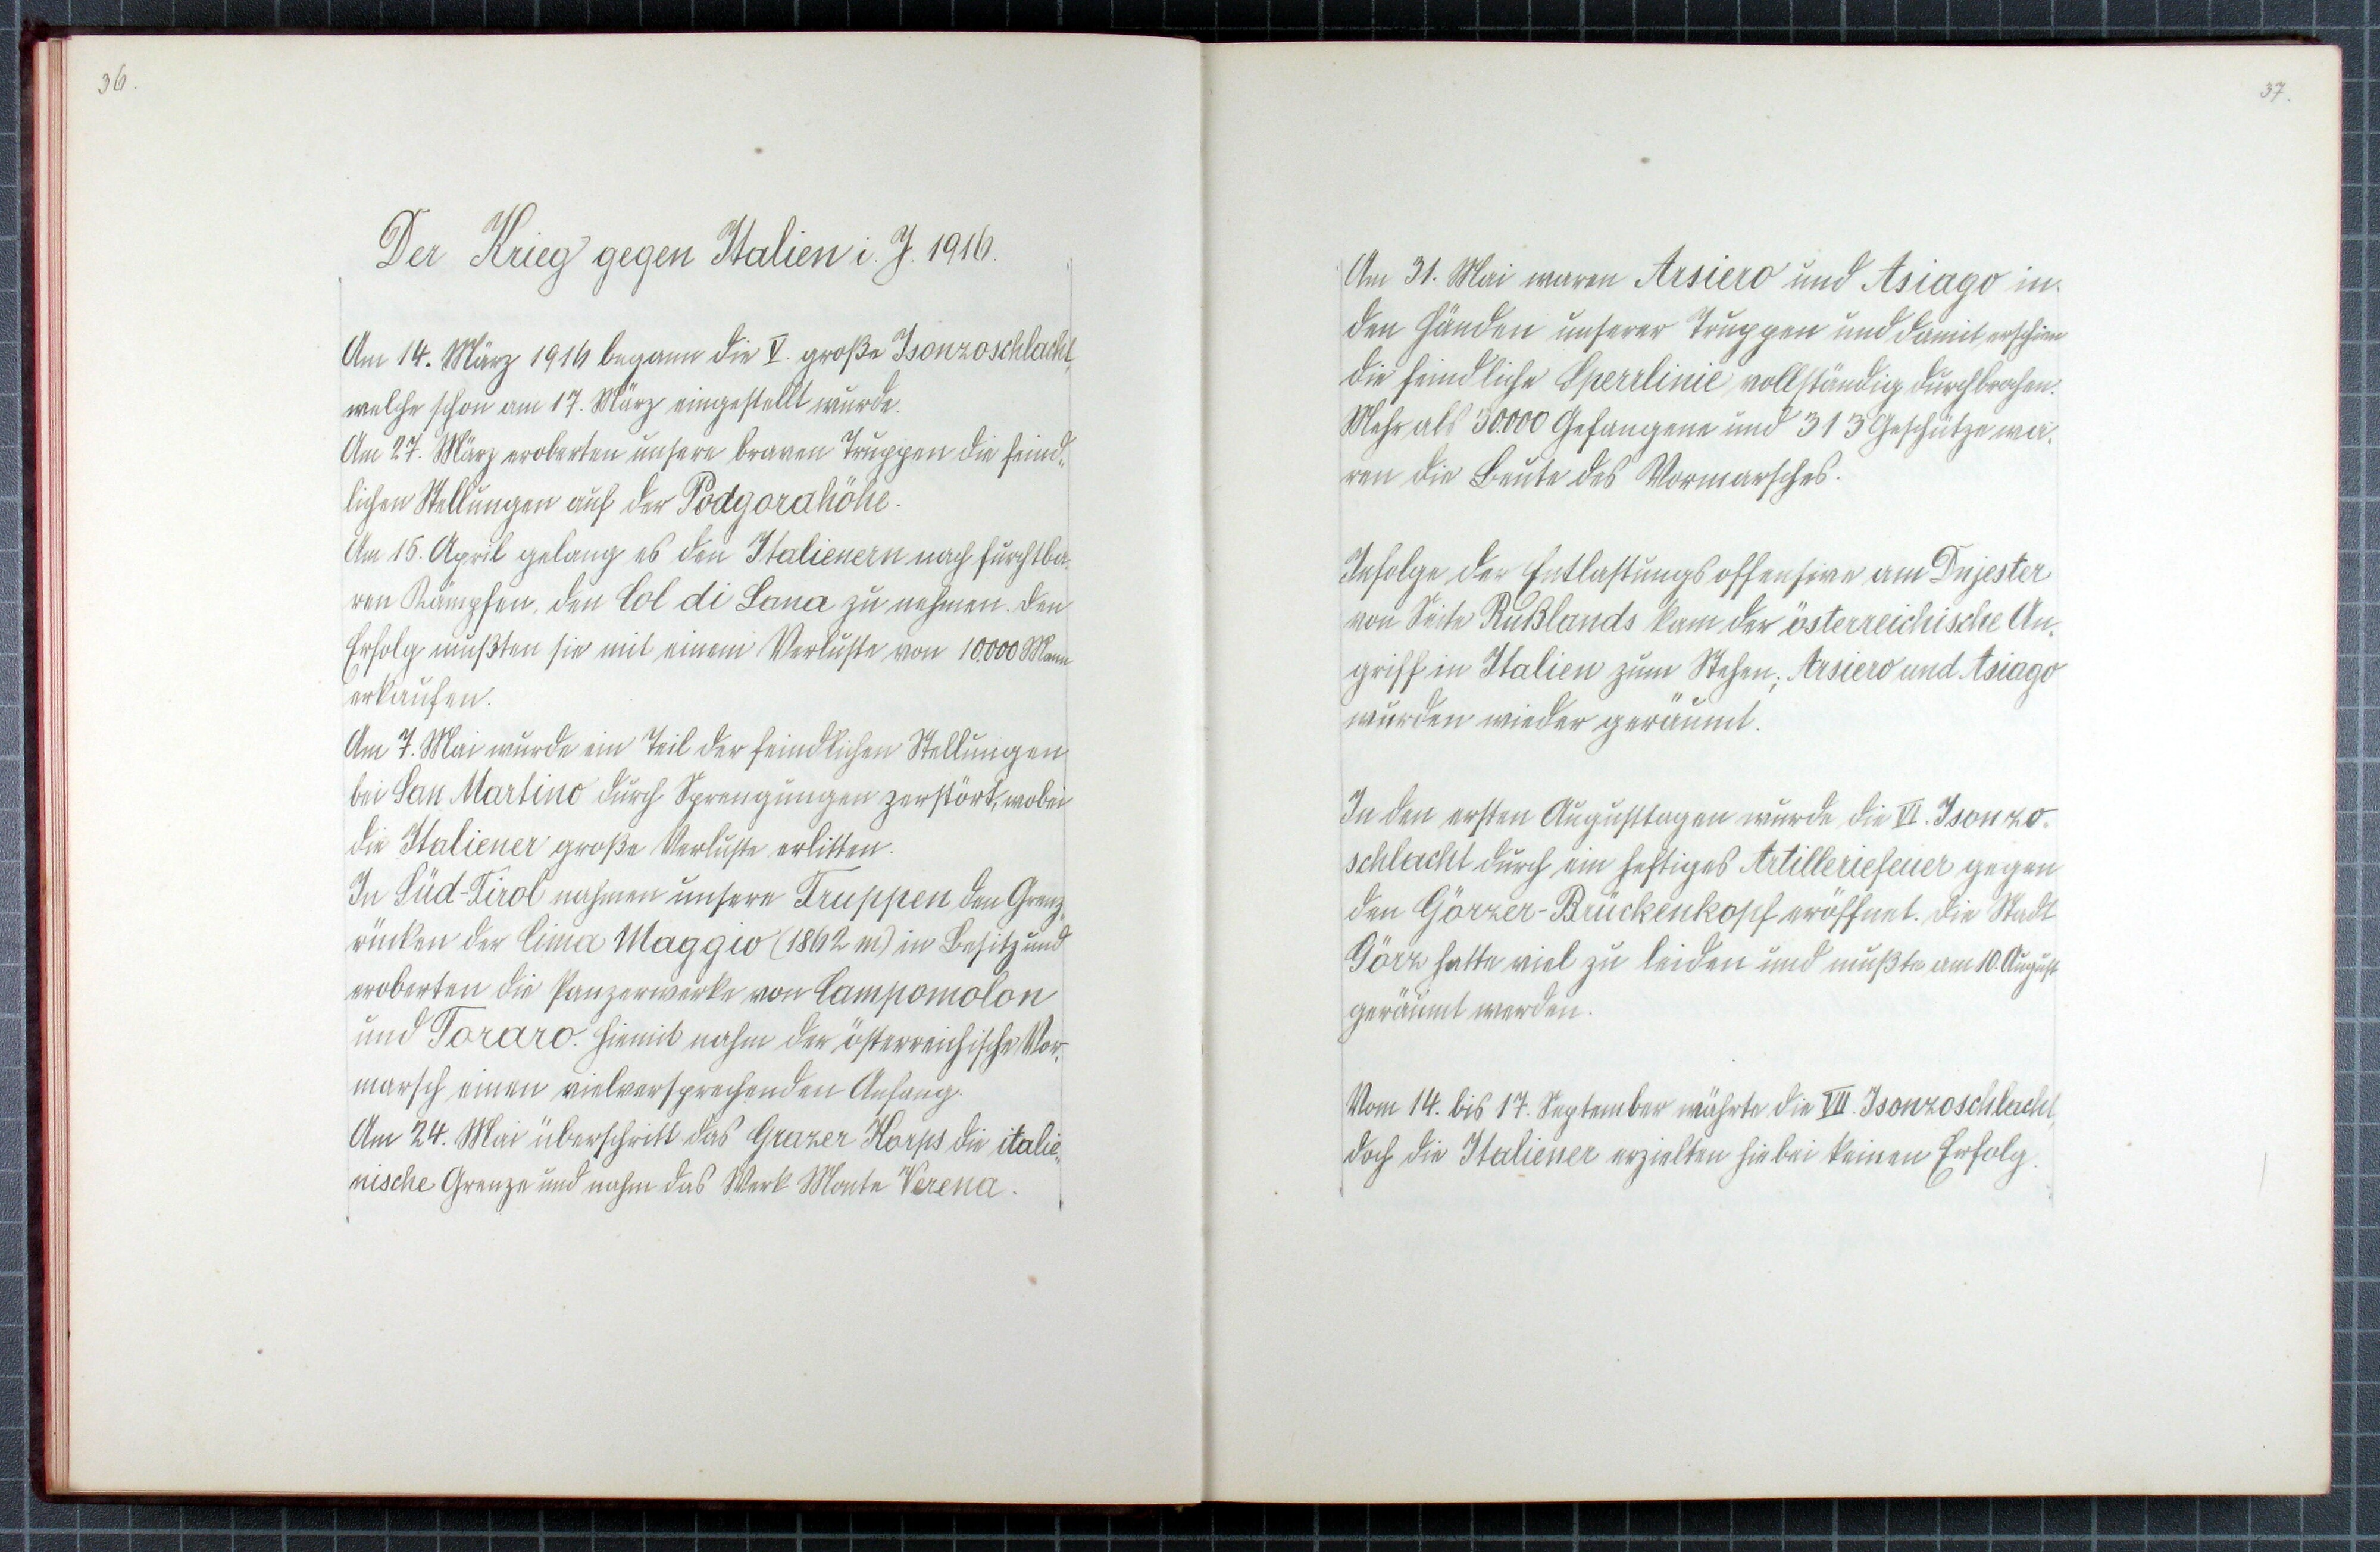 36.
Der Krieg gegen Italien i. J. 1916.
Am 14. März 1916 begann die V. große Isonzoschlacht,
welche schon am 17. März eingestellt wurde.
Am 27. März eroberten unsere braven Truppen die feind-
lichen Stellungen auf der Podgorahöhe.
Am 15. April gelang es den Italienern nach furchtba-
ren Kämpfen, den Col di Lana zu nehmen. Den
Erfolg mußten sie mit einem Verluste von 10.000 Mann
erkaufen.
Am 7. Mai wurde ein Teil der feindlichen Stellungen
bei San Martino durch Sprengungen zerstört, wobei
die Italiener große Verluste erlitten.
In Süd-Tirol nahmen unsere Truppen den Grenz-
rücken der Cima Maggio (1862 m) in Besitz und
eroberten die Panzerwerke von Campomolon
und Toraro. Hiemit nahm der österreichische Vor-
marsch einen vielversprechenden Anfang.
Am 24. Mai überschritt das Grazer Korps die italie-
nische Grenze und nahm das Werk Monte Verena.
37.
Am 31. Mai waren Arsiero und Asiago in
den Händen unserer Truppen und damit erschien
die feindliche Sperrlinie vollständig durchbrochen.
Mehr als 30.000 Gefangene und 313 Geschütze wa-
ren die Beute des Vormarsches.
Infolge der Entlastungsoffensive am Dnjester
von Seite Rußlands kam der österreichische An-
griff in Italien zum Stehen; Arsiero und Asiago
wurden wieder geräumt.
In den ersten Augusttagen wurde die VI. Isonzo-
schlacht durch ein heftiges Artilleriefeuer gegen
den Görzer-Brückenkopf eröffnet. Die Stadt
Görz hatte viel zu leiden und mußte am 10. August
geräumt werden.
Vom 14. bis 17. September währte die VII. Isonzoschlacht,
doch die Italiener erzielten hiebei keinen Erfolg.